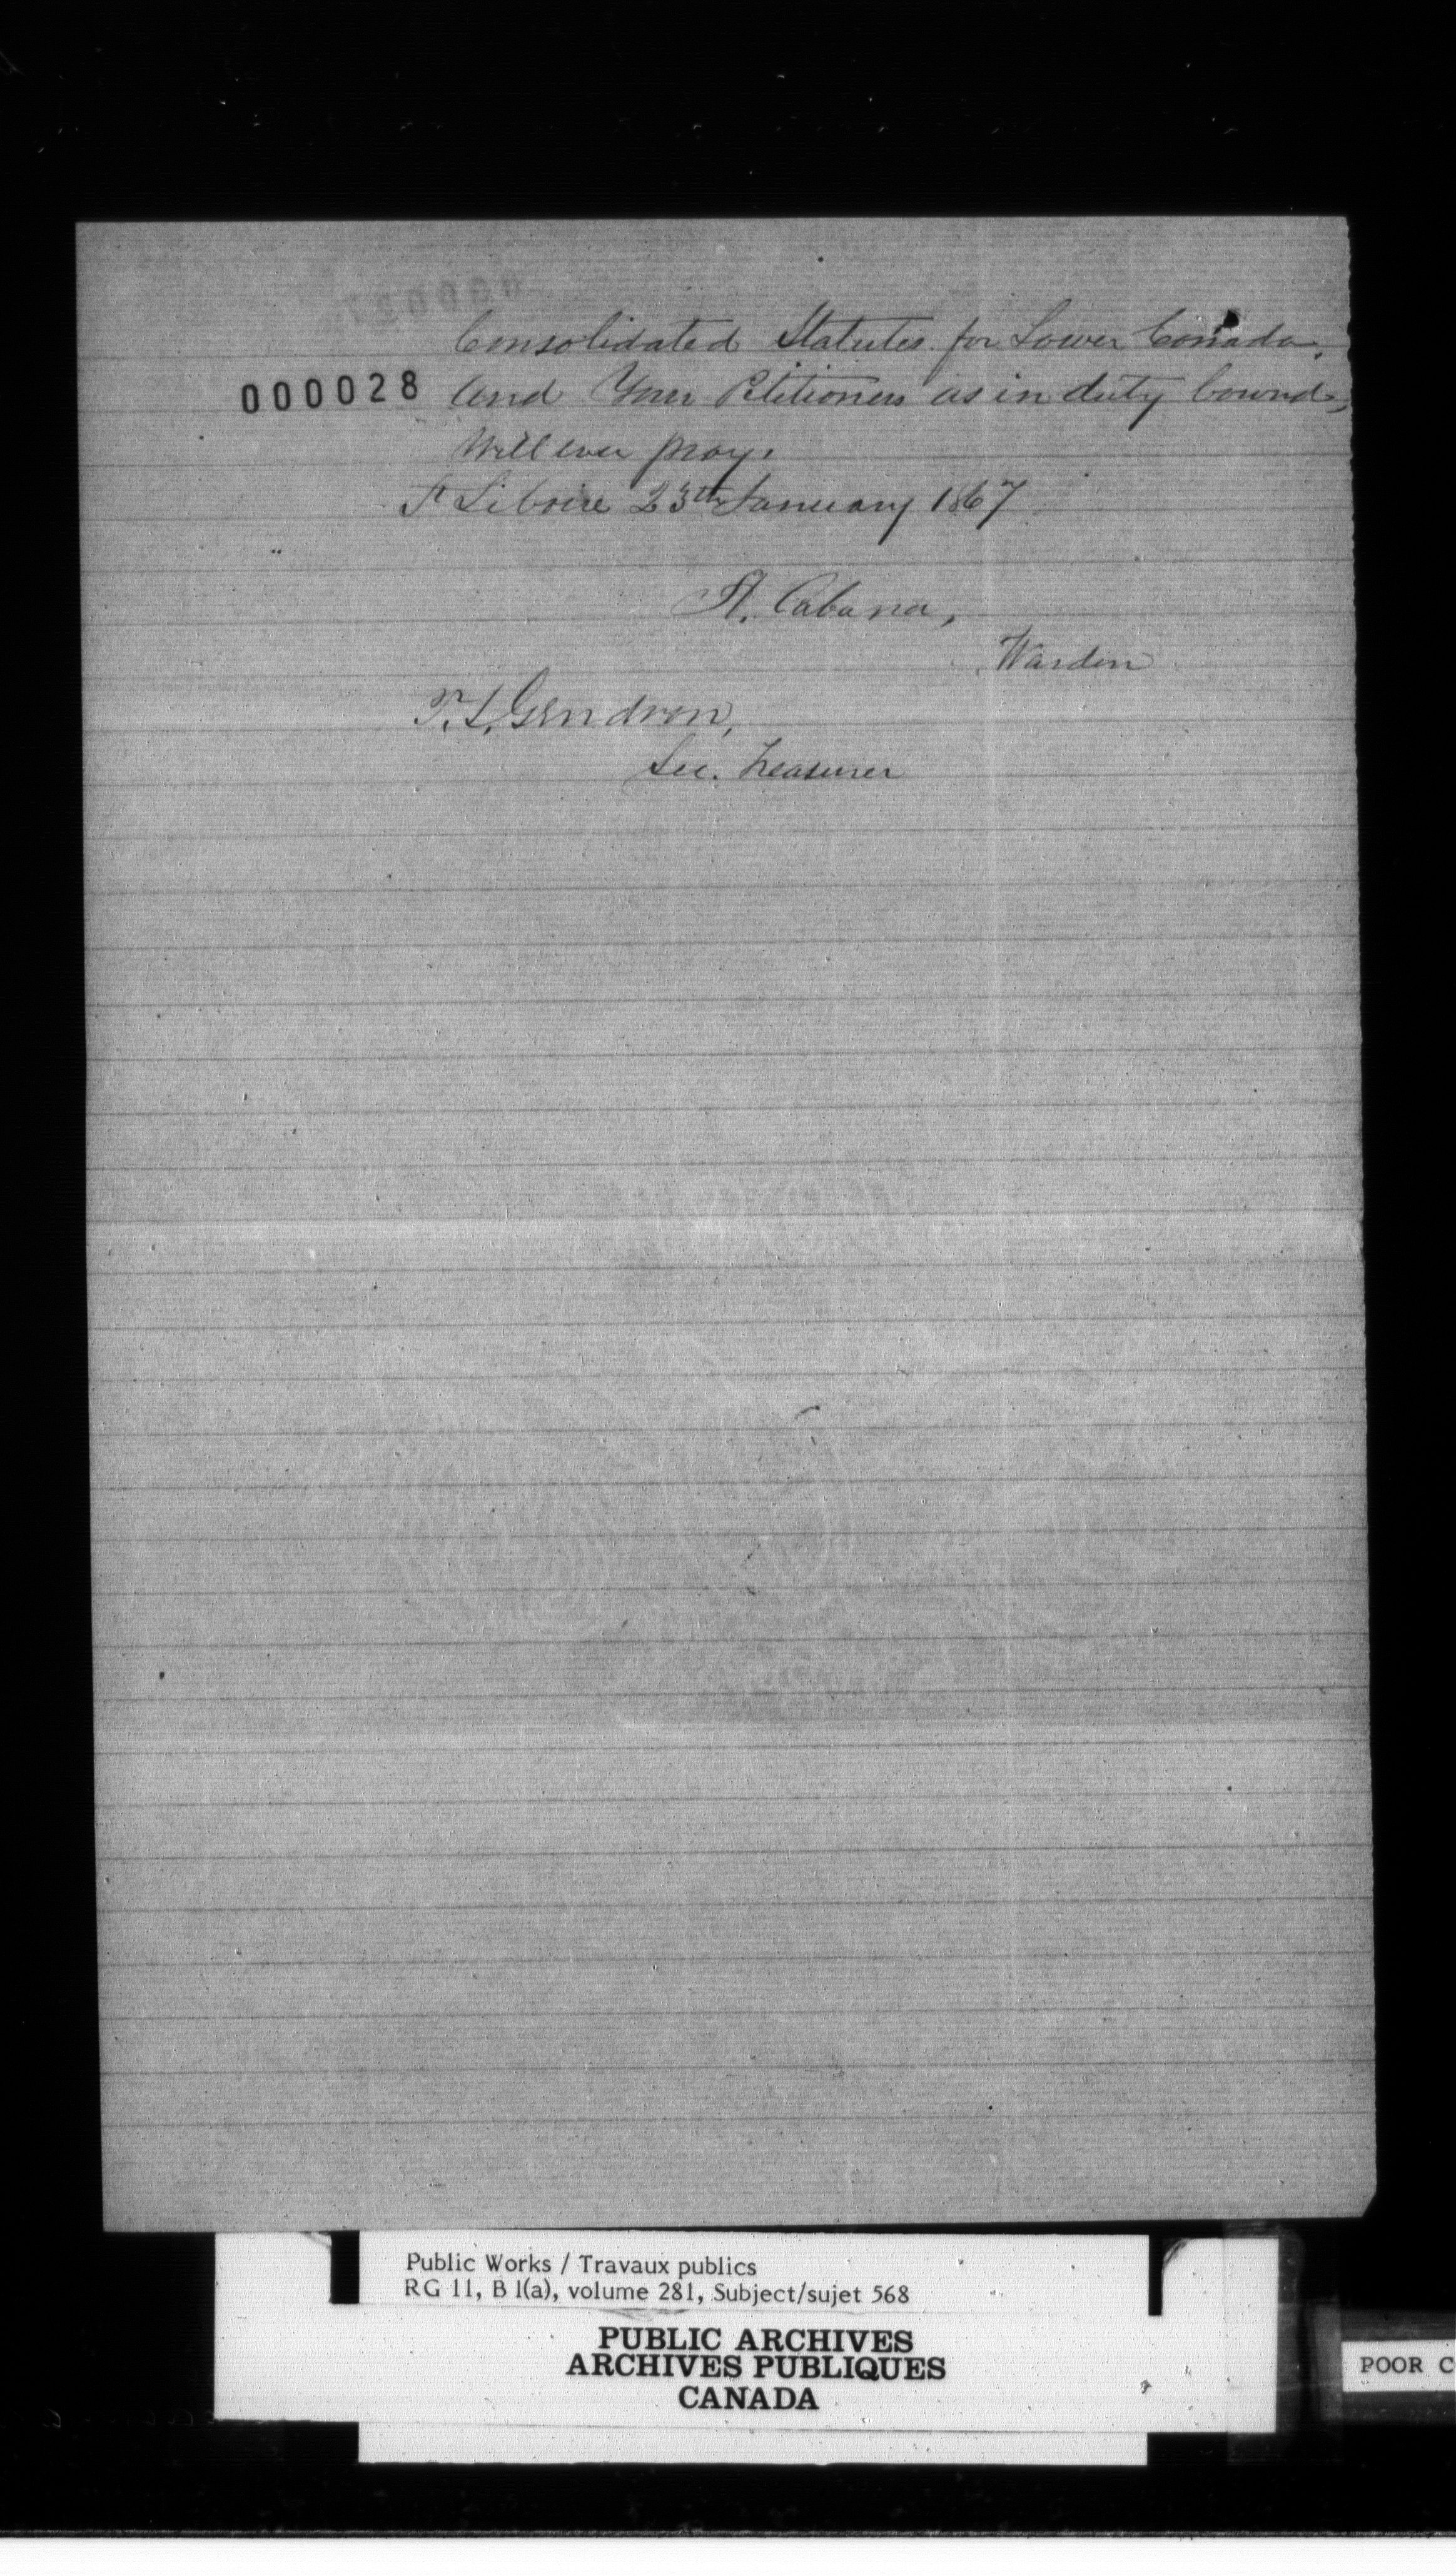 Consolidated Statutes for Lower Canada.
000028
And Your Petitioners as in duty bound,
Will ever pray.
St Liboire 23th January 1867
A. Cabana,
Warden
P. S. Gendron,
Sec. Treasurer
Public Works / Travaux publics
RG 11, B 1(a), volume 281, Subject/sujet 568
PUBLIC ARCHIVES
ARCHIVES PUBLIQUES
CANADA
POOR C